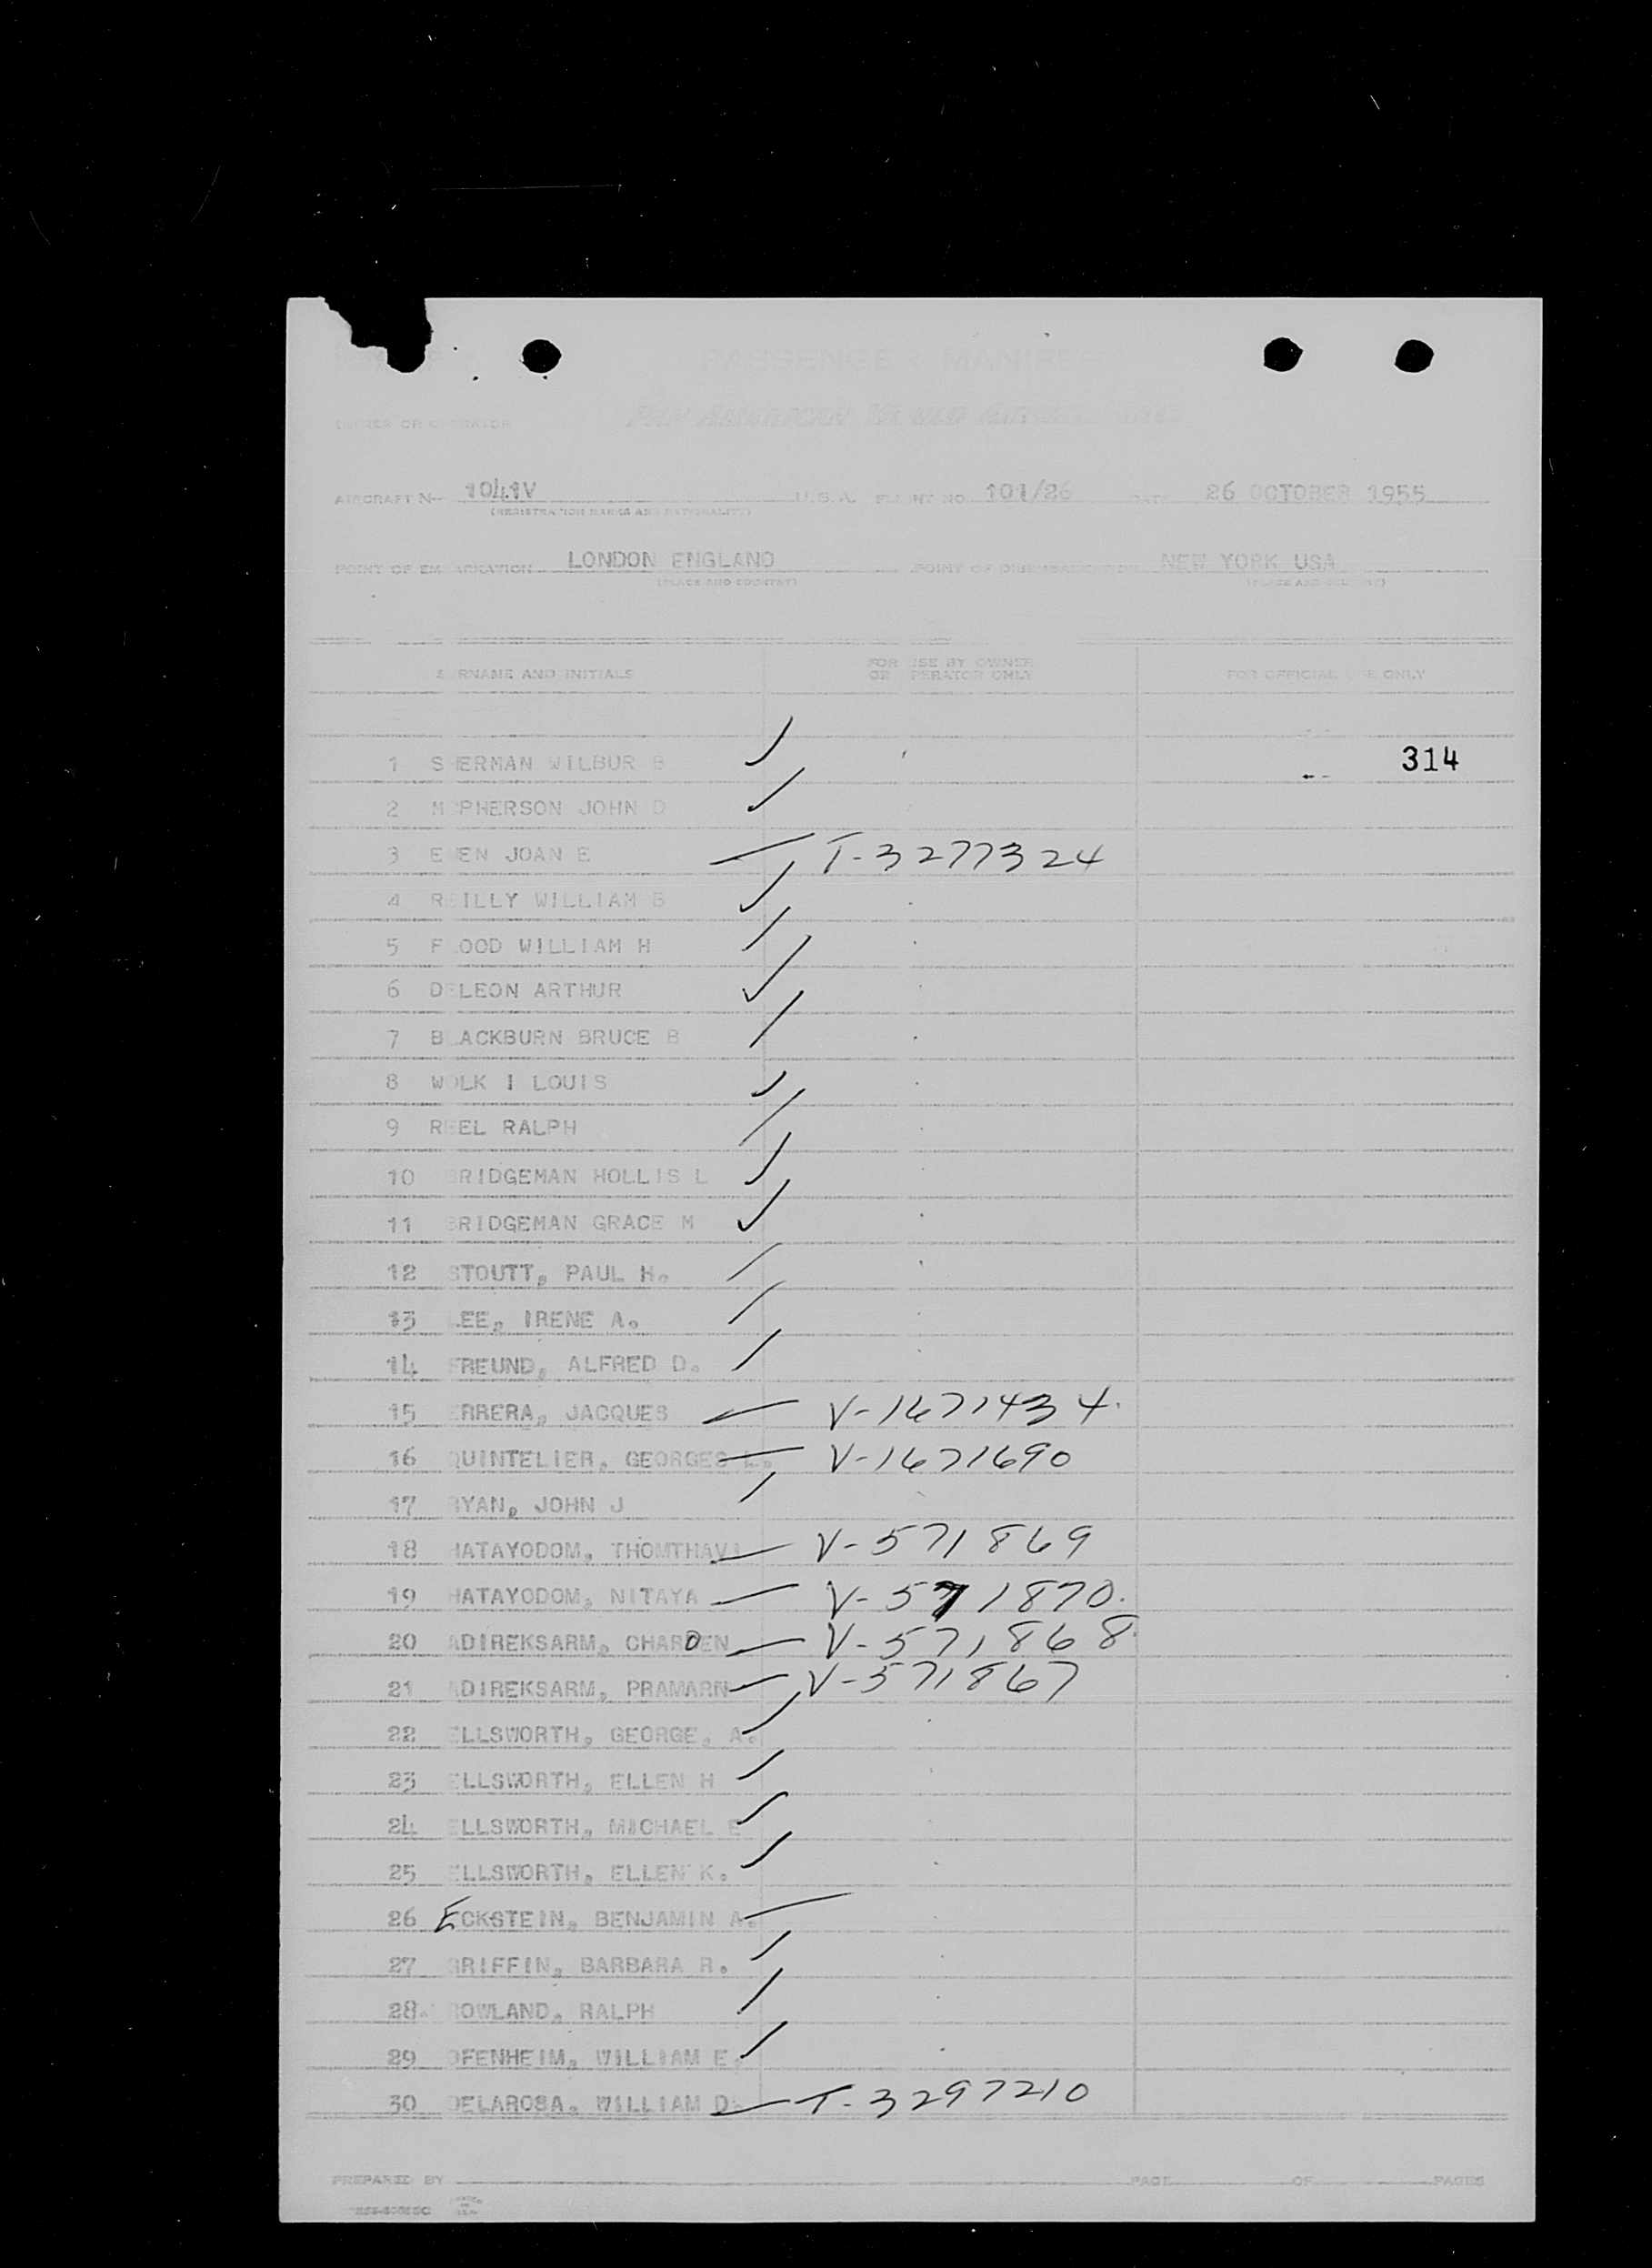 PASSENGER MANIFEST
OWNER OR OPERATOR PAN AMERICAN WORLD AIRWAYS, INC.
AIRCRAFT No 1041V U.S.A. FLIGHT NO. 101/26 DATE 26 OCTOBER 1955
(REGISTRATION MARKS AND NATIONALITY)
POINT OF EMBARKATION LONDON ENGLAND POINT OF DISEMBARKATION NEW YORK USA
(PLACE AND COUNTRY) (PLACE AND COUNTRY)
SURNAME AND INITIALS FOR USE BY OWNER OR OPERATOR ONLY FOR OFFICIAL USE ONLY
314
1 SHERMAN WILBUR B
2 MCPHERSON JOHN D
3 E EN JOAN E T-3277324
4 REILLY WILLIAM B
5 FLOOD WILLIAM H
6 DELEON ARTHUR
7 BLACKBURN BRUCE B
8 WOLK I LOUIS
9 REEL RALPH
10 BRIDGEMAN HOLLIS L
11 BRIDGEMAN GRACE M
12 STOUTT, PAUL H.
13 LEE, IRENE A.
14 FREUND, ALFRED D.
15 ERRERA, JACQUES V-1671434.
16 QUINTELIER, GEORGES L. V-1671690
17 RYAN, JOHN J
18 HATAYODOM, THOMTHAVI V-571869
19 HATAYODOM, NITAYA V-571870.
20 ADIREKSARM, CHAROEN V-571868.
21 ADIREKSARM, PRAMARN V-571867
22 ELLSWORTH, GEORGE, A.
23 ELLSWORTH, ELLEN H
24 ELLSWORTH, MICHAEL E
25 ELLSWORTH, ELLEN K.
26 ECKSTEIN, BENJAMIN A.
27 GRIFFIN, BARBARA R.
28 ROWLAND, RALPH
29 OFENHEIM, WILLIAM E.
30 DELAROSA, WILLIAM D. T-3297210
PREPARED BY PAGE OF PAGES